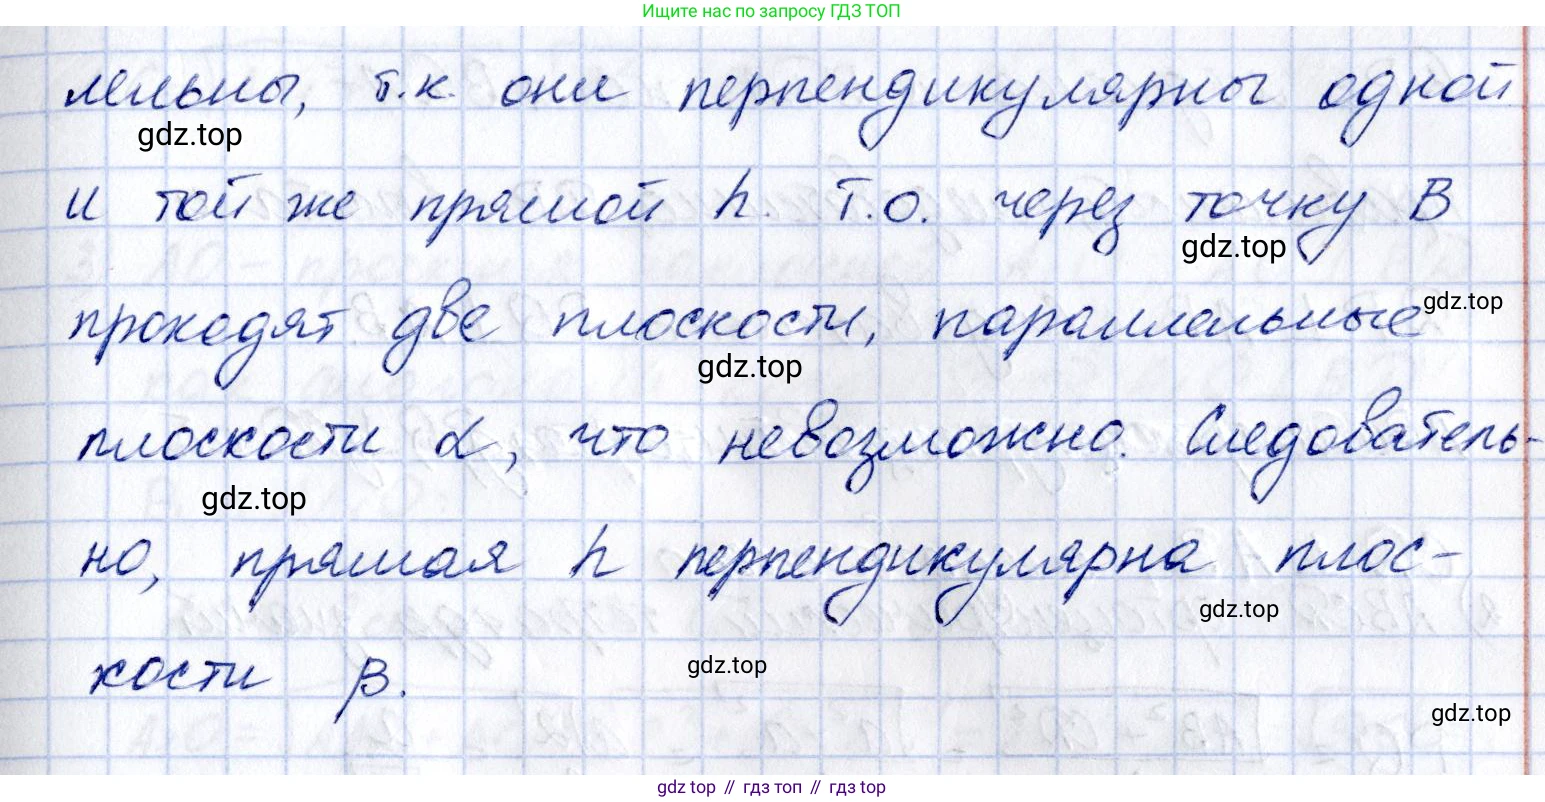 Ищите нас по запросу ГДЗ ТОП
лельны, т.к. они перпендикулярны одной
gdz.top
и той же прямой h. Т.о. через точку В
gdz.top
проходят две плоскости, параллельные
gdz.top
gdz.top
плоскости α, что невозможно. Следователь-
gdz.top
но, прямая h перпендикулярна плос-
gdz.top
кости β.
gdz.top
gdz.top
gdz top // гдз топ // гдз top